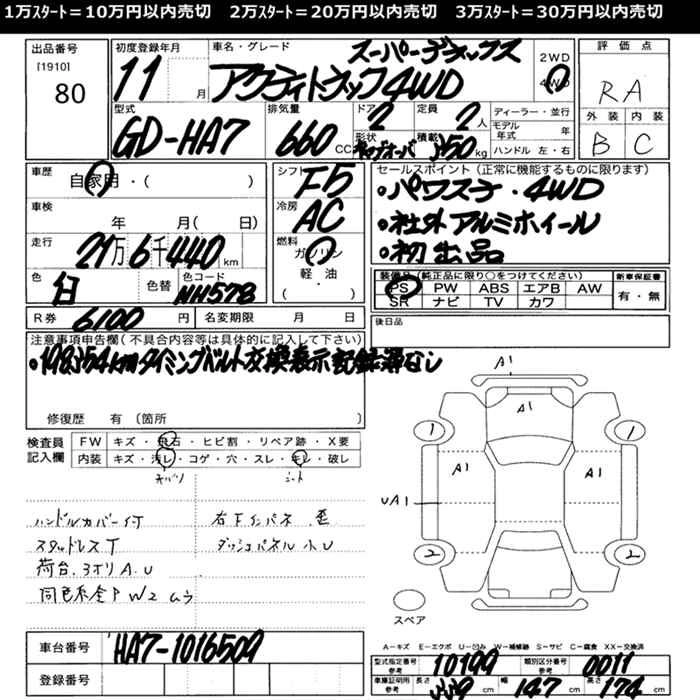 1万ｽﾀｰﾄ＝10万円以内売切　2万ｽﾀｰﾄ＝20万円以内売切　3万ｽﾀｰﾄ＝30万円以内売切
出品番号
[1910]
80
初度登録年月
11 月
車名・グレード
スーパーデラックス
アクティトラック4WD
2WD
4WD
評価点
RA
外装 内装
B C
型式
GD-HA7
排気量
660 CC
ドア 2
形状 キャブオーバ
定員 2 人
積載 350 kg
ディーラー・並行
モデル年式 年
ハンドル 左・右
車歴
自家用・( )
シフト
F5
セールスポイント(正常に機能するものに限ります)
・パワステ・4WD
・社外アルミホイール
・初出品
車検
年 月( 日)
冷房
AC
走行
21万6千440 km
燃料
ガソリン
軽・油
( )
色
白
色替
色コード
NH578
装備品(純正品に限り○をつけてください)
新車保証書
PS PW ABS エアB AW
SR ナビ TV カワ
有・無
R券 6100 円
名変期限 月 日
後日品
注意事項申告欄(不具合内容等は具体的に記入して下さい)
・198354kmタイミングベルト交換表示記録簿なし
修復歴 有 (箇所 )
検査員
記入欄
FW キズ・飛石・ヒビ割・リペア跡・X要
内装 キズ・汚レ・コゲ・穴・スレ・キレ・破レ
シート
ハンドルカバー付
右下インパネ歪
スタッドレスT
ダッシュパネル小U
荷台、3オリA.U
同色系全P W2 ムラ
A1
A1
1
1
A1
A1
UA1
2
2
スペア
車台番号
HA7-1016509
登録番号
A―キズ E―エクボ U―凹み W―補修跡 S―サビ C―腐食 XX―交換済
型式指定番号
参考
10199
類別区分番号
参考
0011
車庫証明用
参考
長さ 339 cm
幅 147 cm
高さ 174 cm